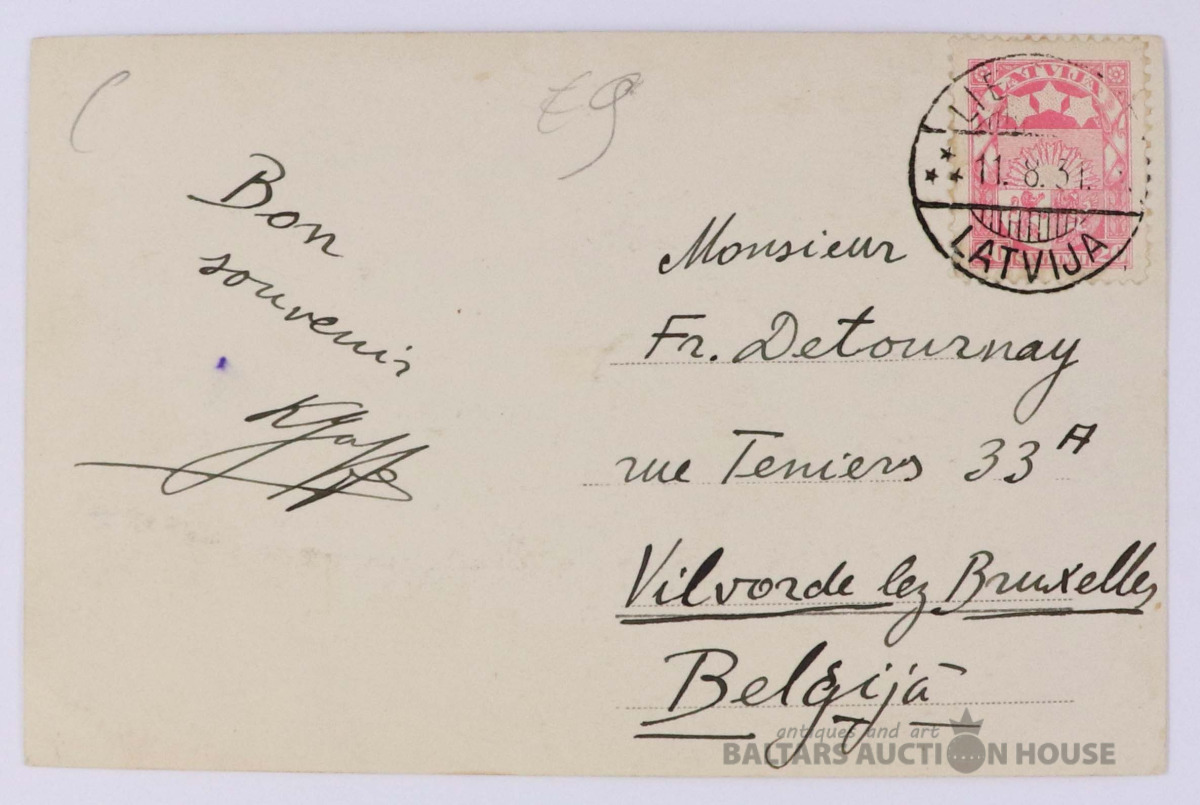 LATVIJA
LIE
11. 8. 31.
LATVIJA
Bon
souvenir
Monsieur
Fr. Detournay
rue Teniers 33A
Vilvorde lez Bruxelles
Belgijā
antiques and art
BALTARS AUCTION HOUSE